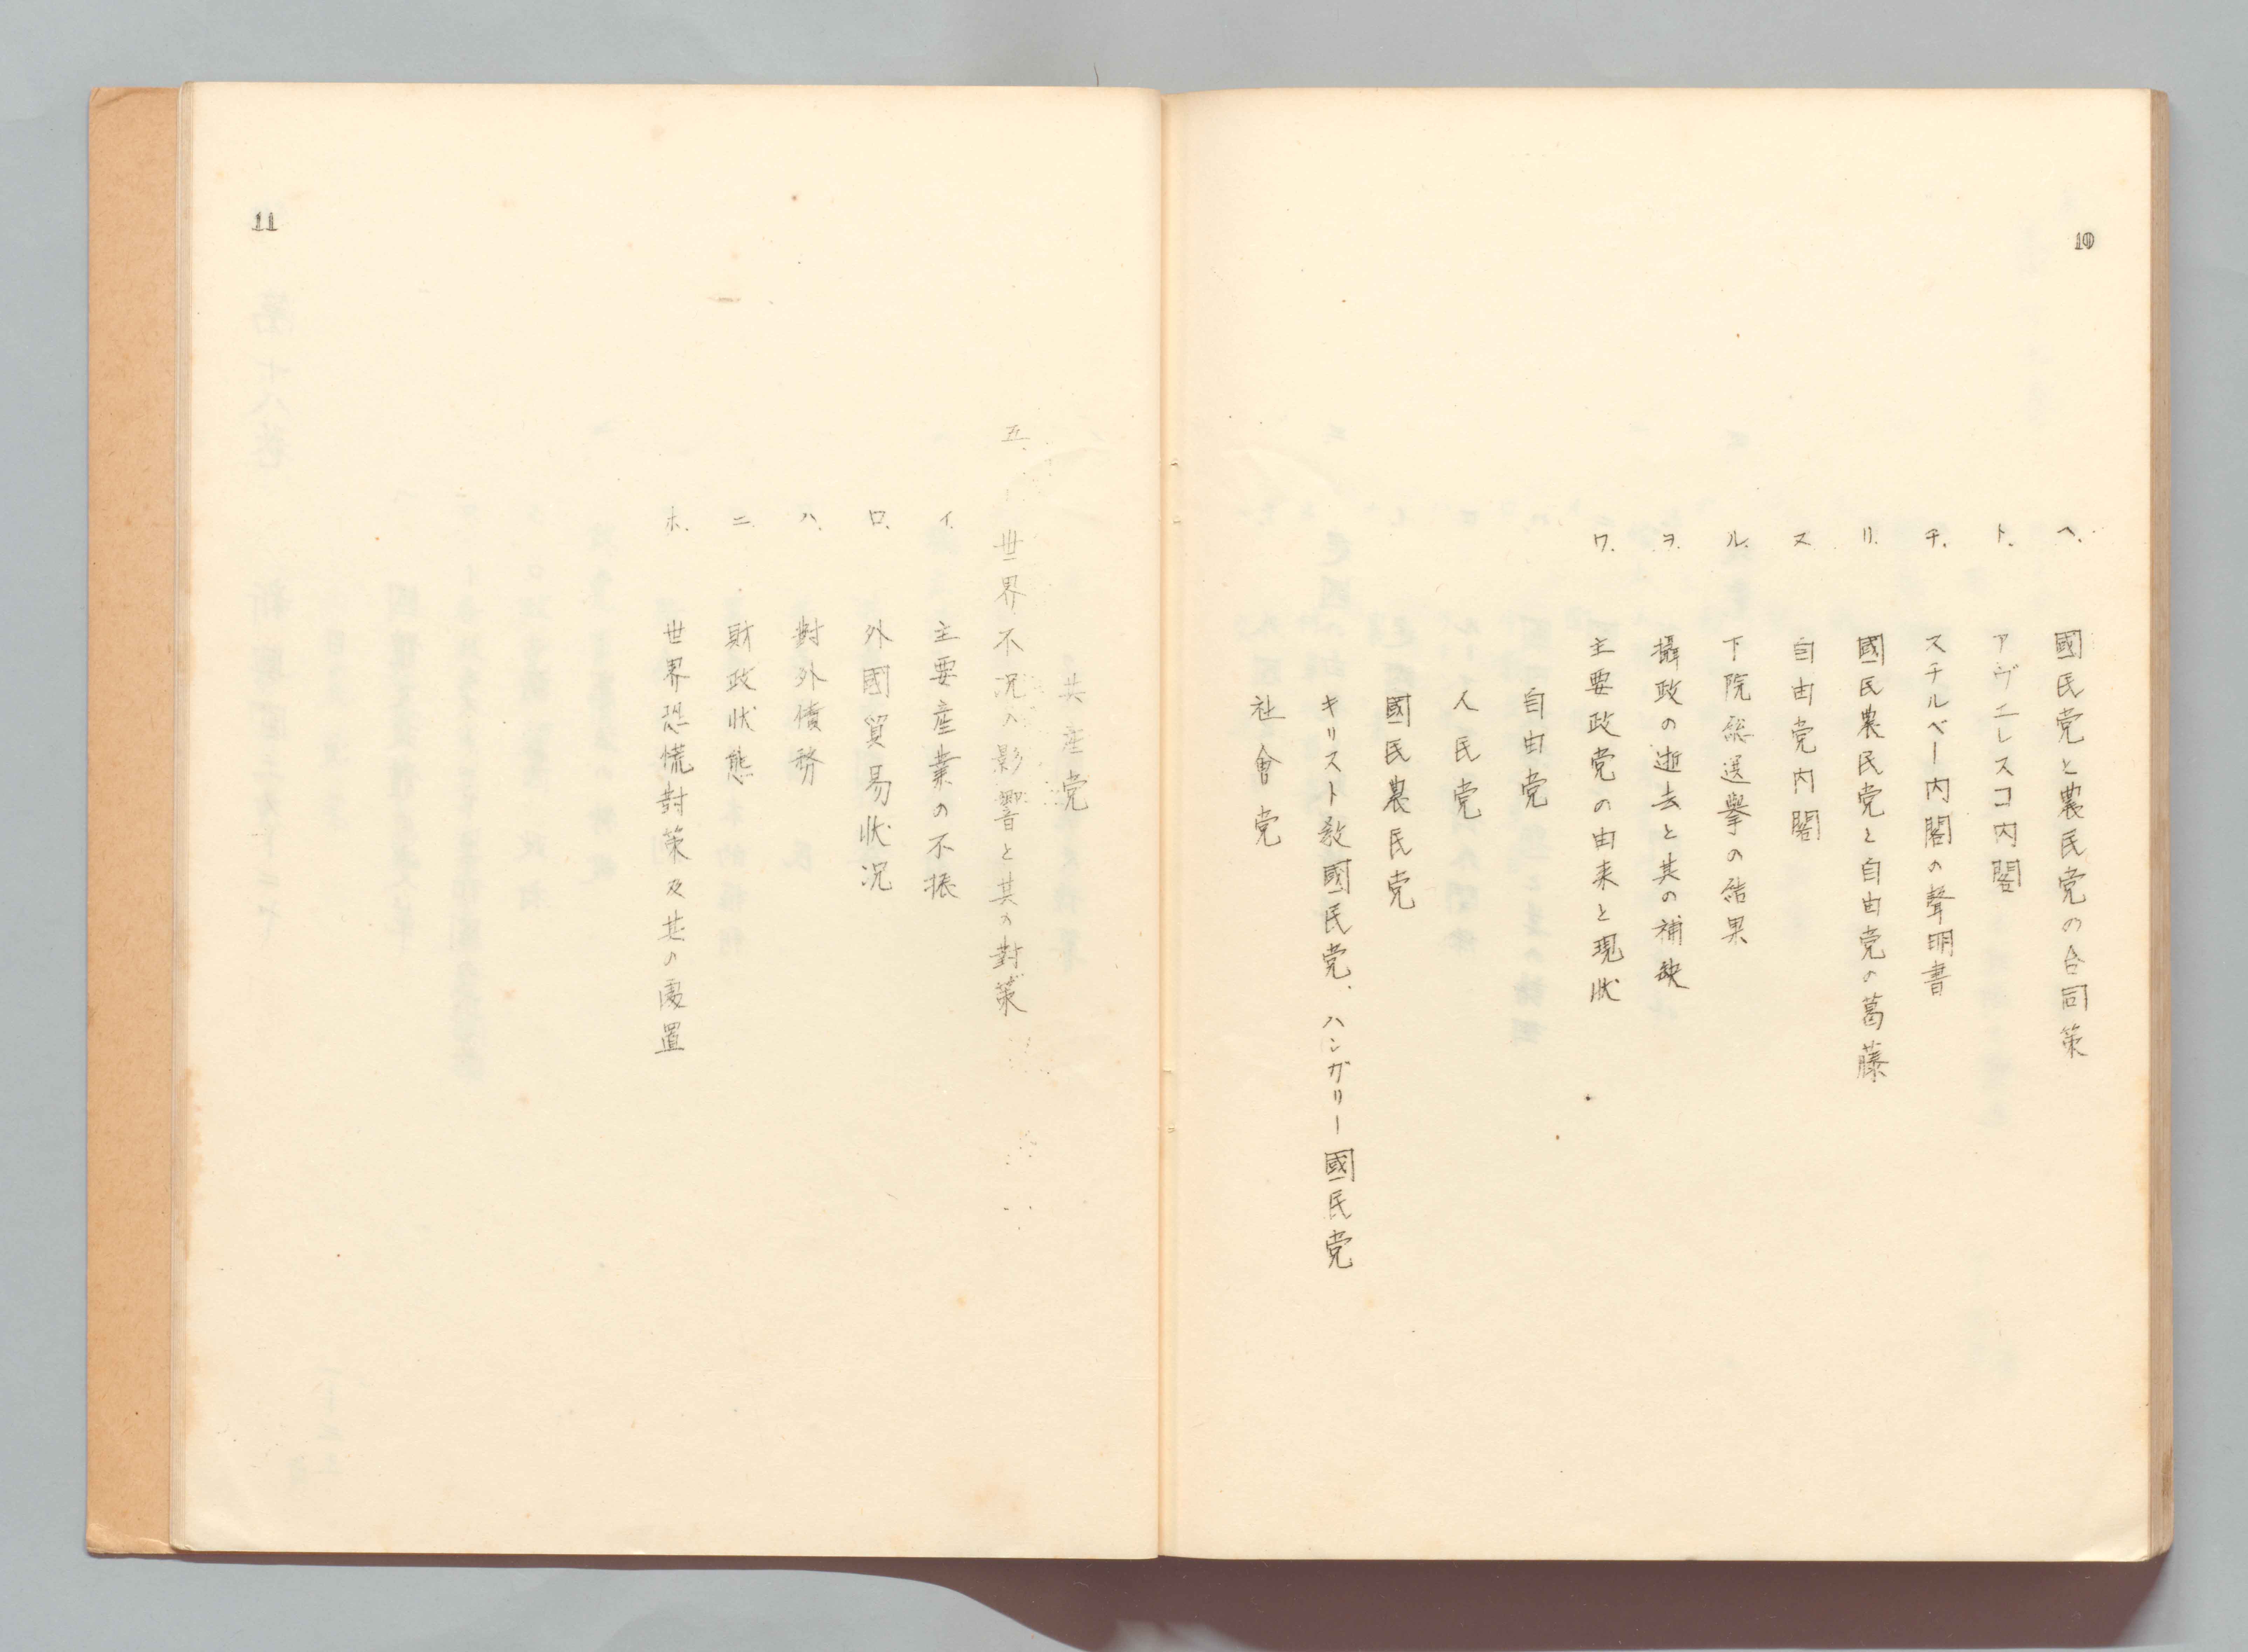 10
ヘ. 國民党と農民党の合同策
ト. アヴエレスコ内閣
チ. スチルベー内閣の聲明書
リ. 國民農民党と自由党の葛藤
ヌ 自由党内閣
ル. 下院総選挙の結果
ヲ. 攝政の逝去と其の補缺
ワ. 主要政党の由来と現状
自由党
人民党
國民農民党
キリスト教國民党、ハンガリー國民党
社會党
11
共産党
五. 世界不况の影響と其の對策
イ. 主要産業の不振
ロ. 外國貿易状况
ハ. 對外債務
ニ. 財政状態
ホ. 世界恐慌對策及其の處置